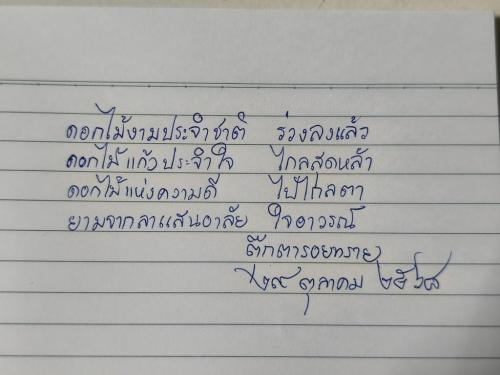 ดอกไม้งามประจำชาติ ร่วงลงแล้ว
ดอกไม้แก้วประจำใจ ไกลสุดหล้า
ดอกไม้แห่งความดี ไปไกลตา
ยามจากลาแสนอาลัย ใจอาวรณ์
ตุ๊กตารอยทราย
๒๙ ตุลาคม ๒๕๖๘